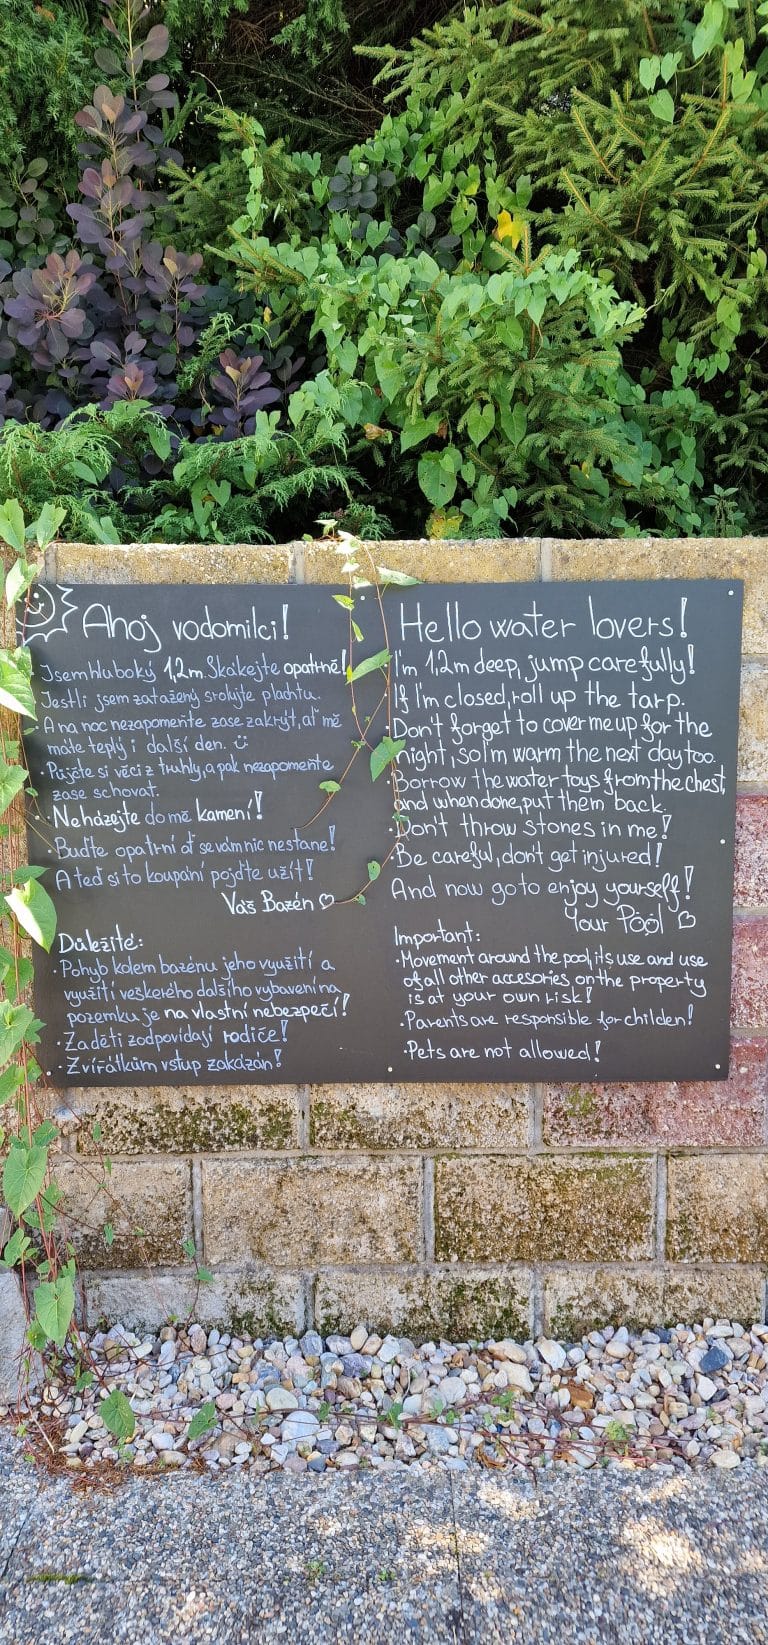 Ahoj vodomilci!
Jsem hluboký 1,2m. Skákejte opatrně!
Jestli jsem zatažený srolujte plachtu.
A na noc nezapomeňte zase zakrýt, ať mě
máte teplý i další den.
• Půjčte si věci z truhly, a pak nezapomeňte
zase schovat.
• Neházejte do mě kamení!
• Buďte opatrní ať se vám nic nestane!
A teď si to koupání pojďte užít!
Váš Bazén ♡
Důležité:
• Pohyb kolem bazénu jeho využití a
využití veškerého dalšího vybavení na
pozemku je na vlastní nebezpečí!
• Za děti zodpovídají rodiče!
• Zvířátkům vstup zakázán!
Hello water lovers!
I'm 1,2m deep, jump carefully!
If I'm closed, roll up the tarp.
Don't forget to cover me up for the
night, so I'm warm the next day too.
Borrow the water toys from the chest,
and when done, put them back.
Don't throw stones in me!
Be careful, don't get injured!
And now go to enjoy yourself!
Your Pool ♡
Important:
• Movement around the pool, its use and use
of all other accesories on the property
is at your own risk!
• Parents are responsible for childen!
• Pets are not allowed!